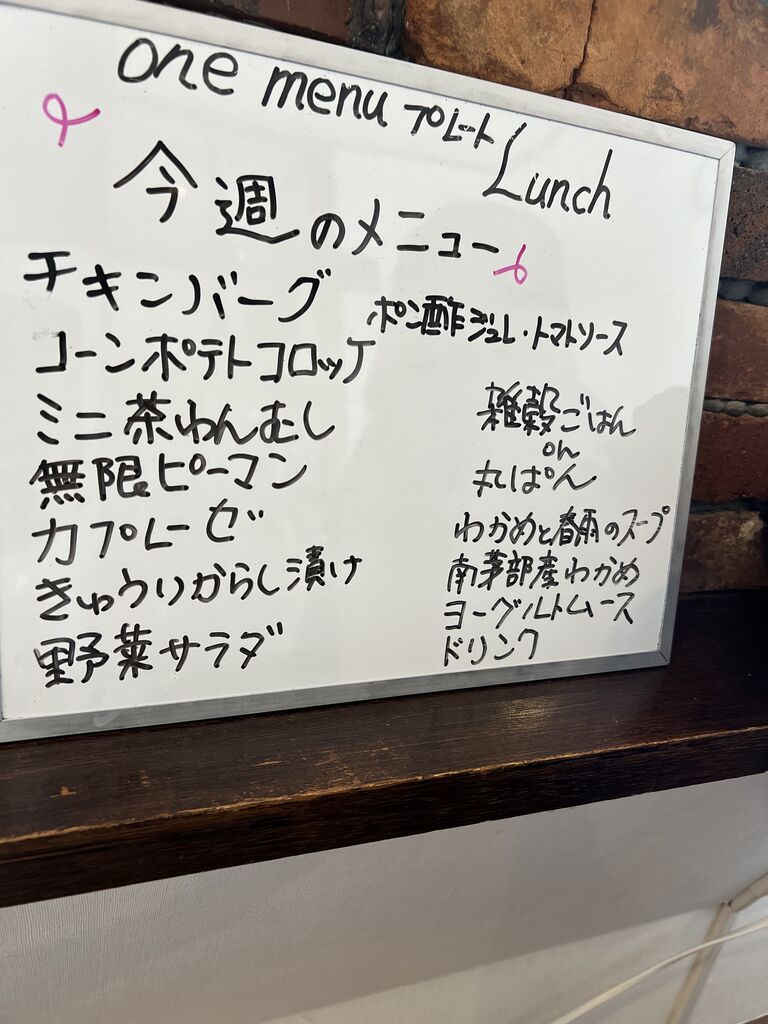 one menu プレート Lunch
今週のメニュー
チキンバーグ ポン酢ジュレ・トマトソース
コーンポテトコロッケ
ミニ茶わんむし
無限ピーマン
カプレーゼ
きゅうりからし漬け
野菜サラダ
雑穀ごはん
or
丸ぱん
わかめと春雨のスープ
南茅部産わかめ
ヨーグルトムース
ドリンク